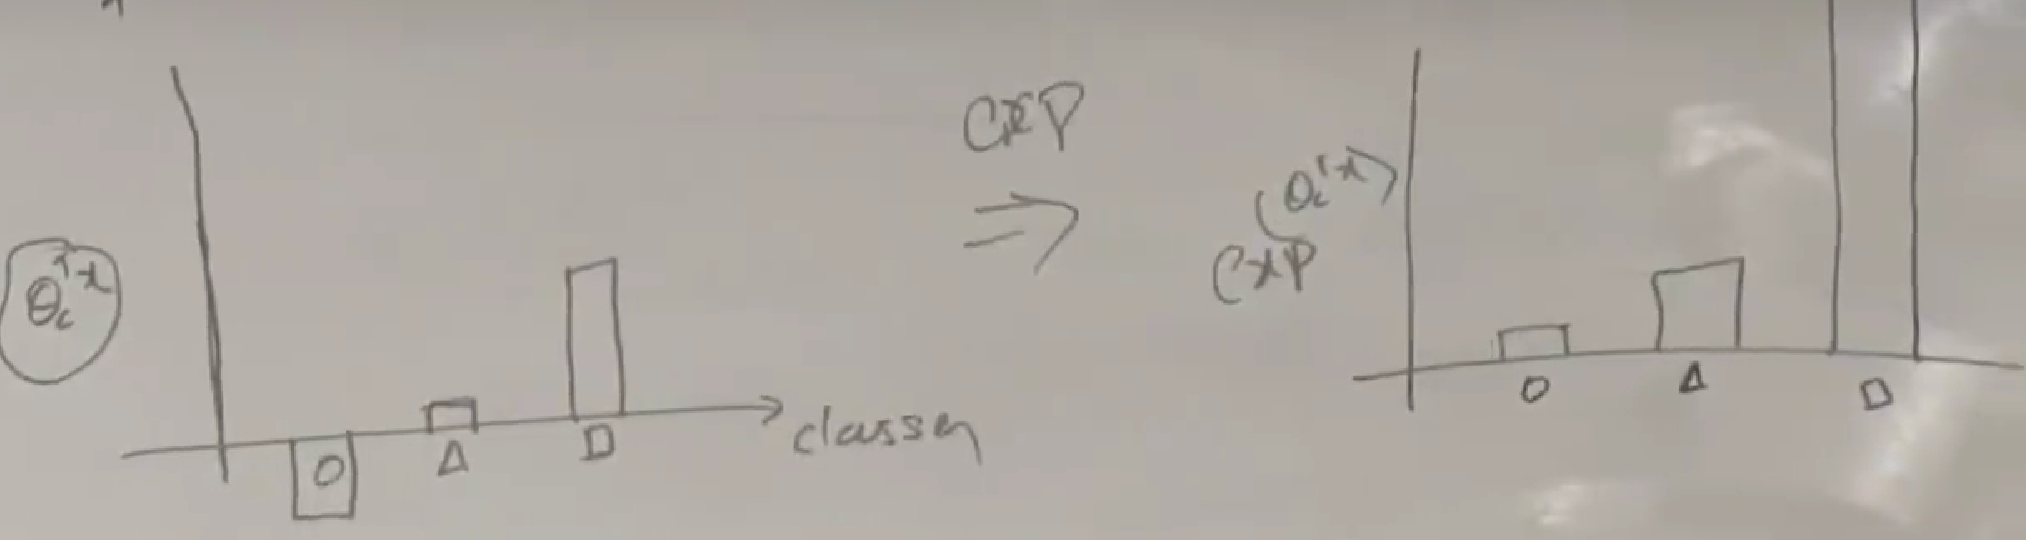 θ_c^T x
O Δ □ classes
exp
⇒
exp(θ_c^T x)
O Δ □